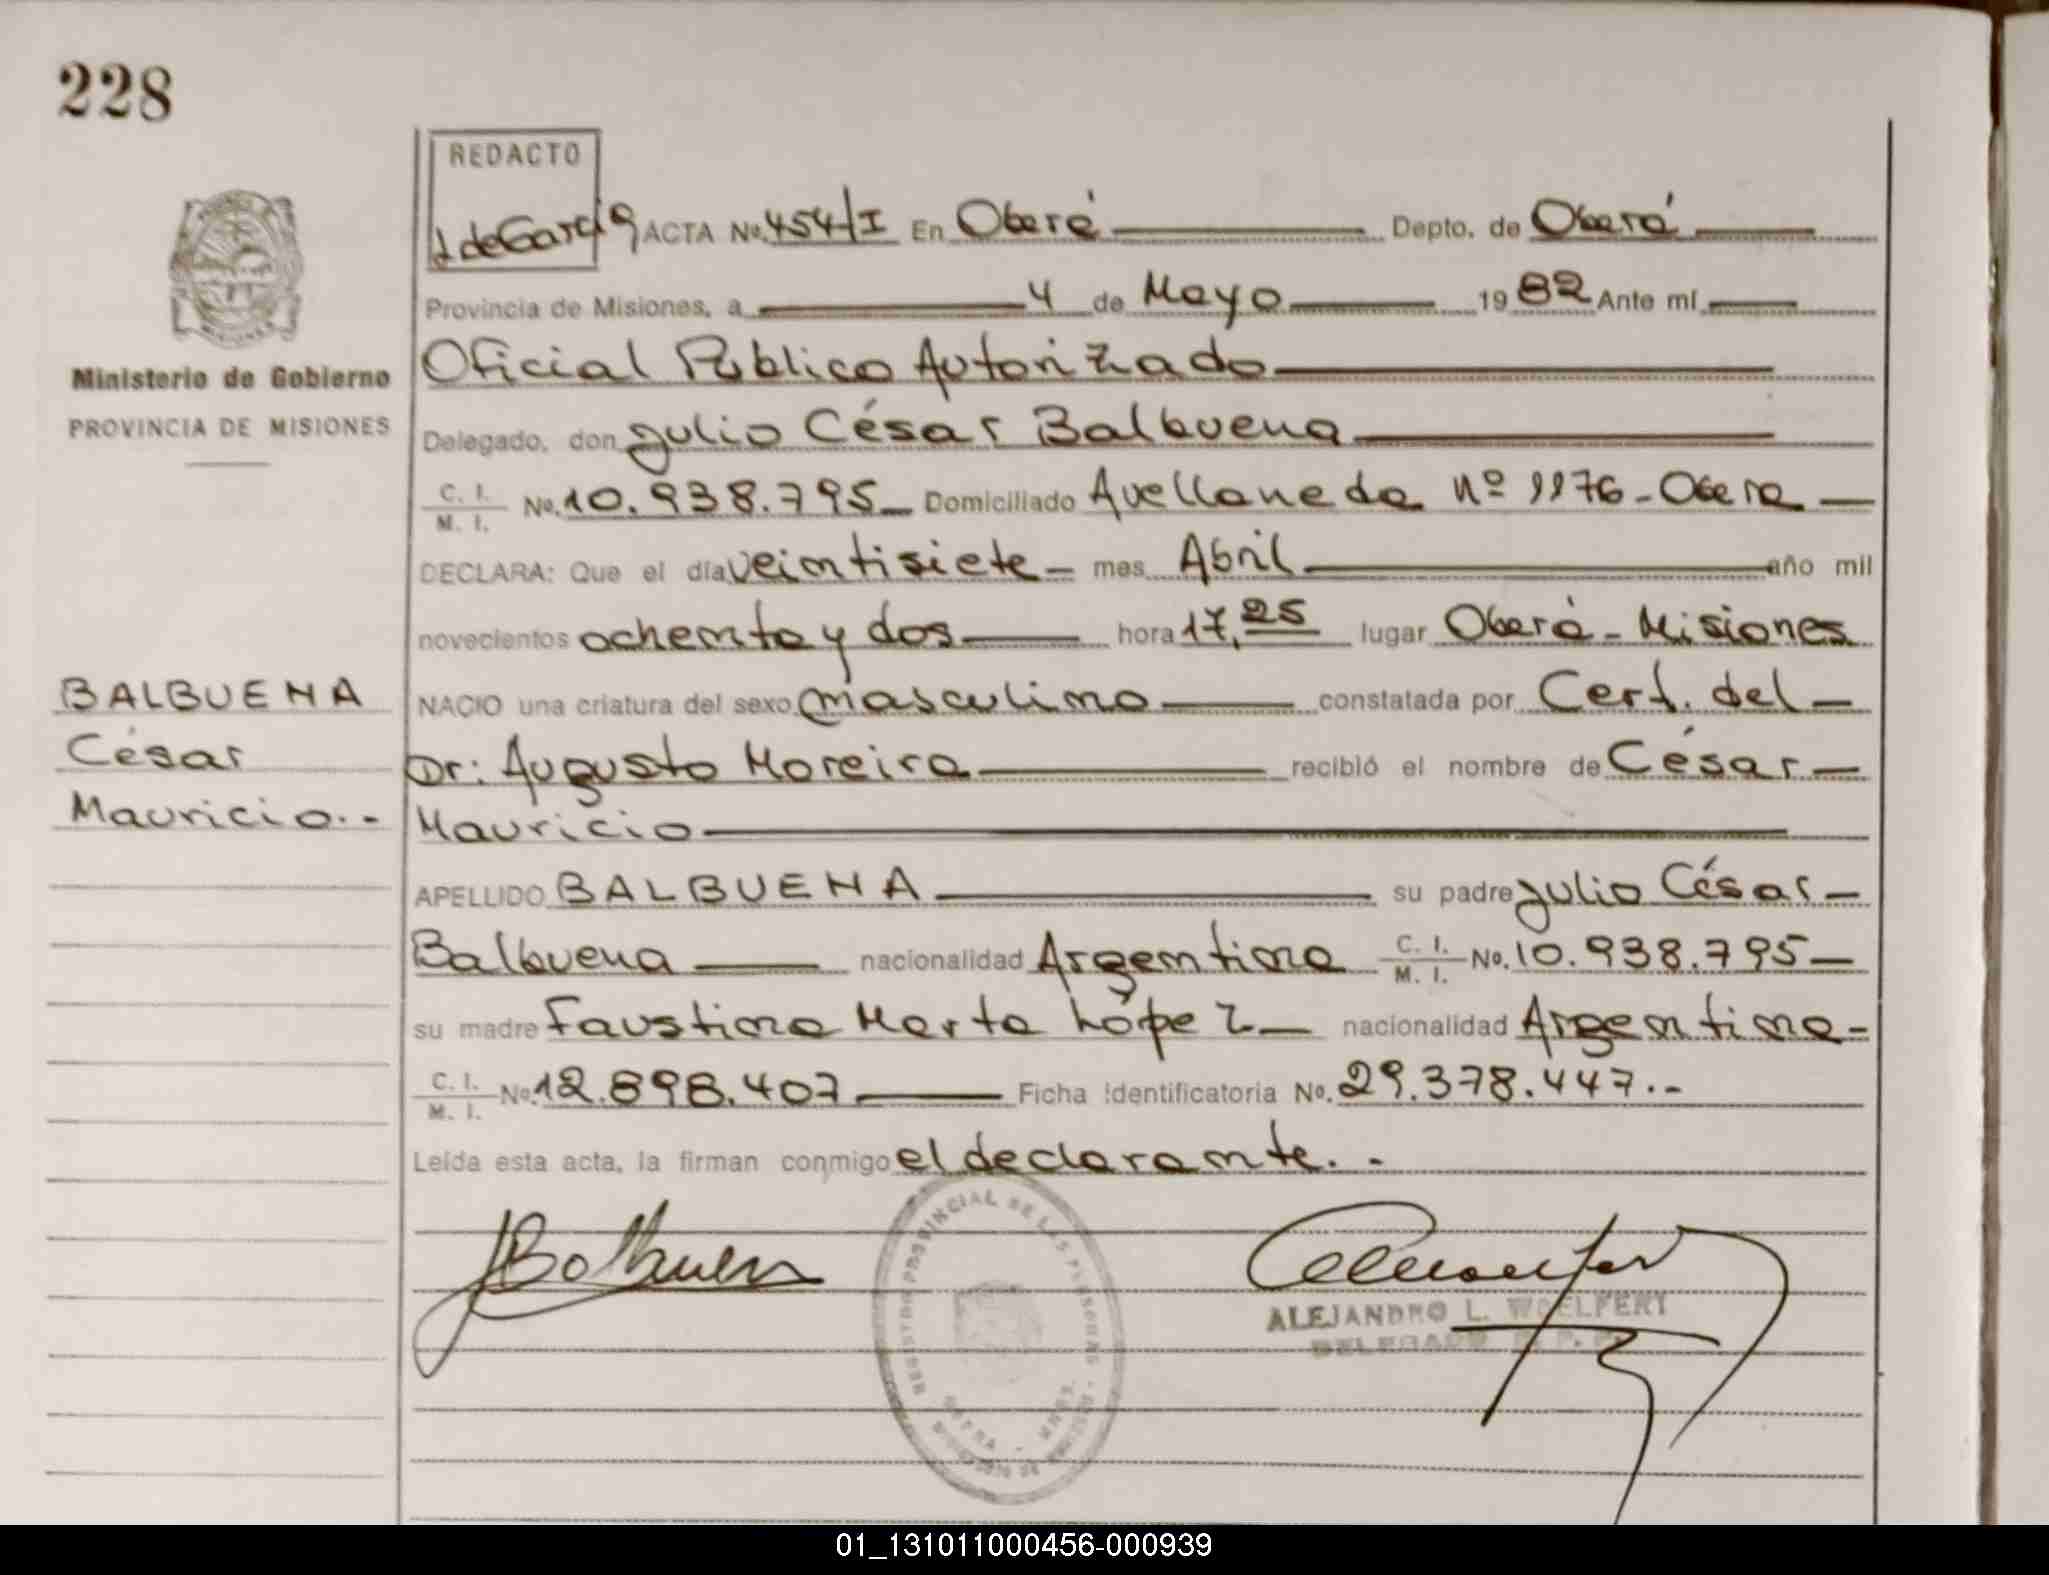 228
REDACTO
J de García ACTA No. 454/I En Oberá Depto. de Oberá
Provincia de Misiones, a 4 de Mayo 1982 Ante mí
Oficial Público Autorizado
Ministerio de Gobierno
PROVINCIA DE MISIONES
Delegado, don Julio César Balbuena
C. I.
M. I. No. 10.938.795 Domiciliado Avellaneda Nº 1176 - Obera
DECLARA: Que el día veintisiete mes Abril año mil
novecientos ochenta y dos hora 17,25 lugar Oberá - Misiones
BALBUENA
César
Mauricio.-
NACIO una criatura del sexo masculino constatada por Cert. del
Dr: Augusto Moreira recibió el nombre de César
Mauricio
APELLIDO BALBUENA su padre Julio César
Balbuena nacionalidad Argentina C. I. M. I. No. 10.938.795
su madre Faustina Marta López nacionalidad Argentina
C. I. M. I. No. 12.898.407 Ficha Identificatoria No. 29.378.447.-
Leída esta acta, la firman conmigo el declarante.-
JBalbuena
REGISTRO PROVINCIAL DE LAS PERSONAS
ALEJANDRO L. WOELFERT
DELEGADO R. P. P.
01_131011000456-000939